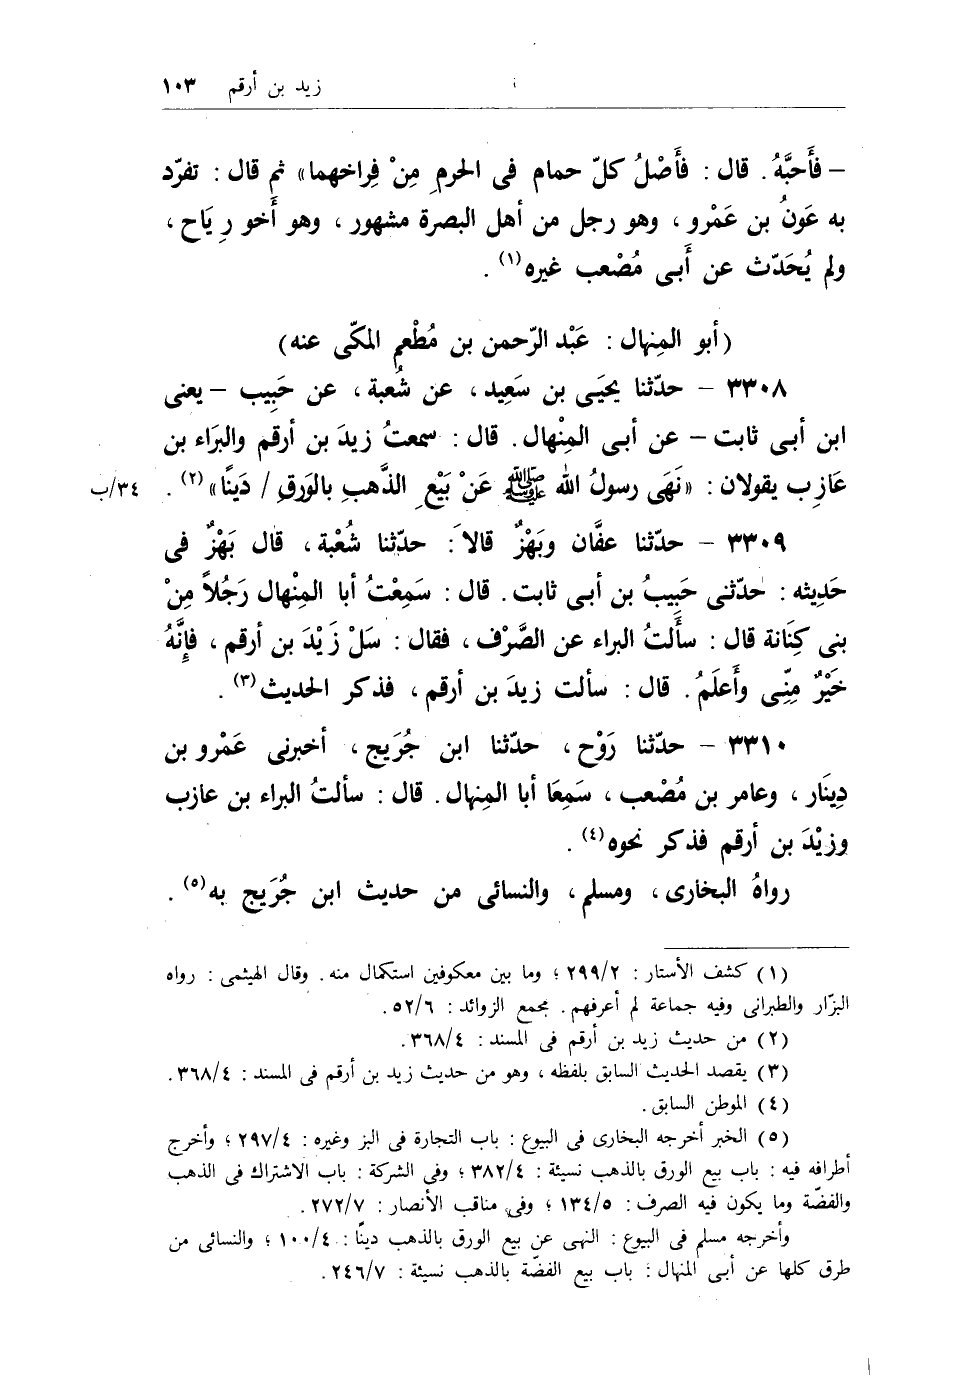 زيد بن أرقم ١٠٣
– فأَحبَّهُ. قال : فأَصْلُ كلّ حمام فى الحرمِ مِنْ فِراخهما» ثم قال : تفرّد
به عَونُ بن عَمْرو ، وهو رجل من أهل البصرة مشهور ، وهو أخو رِيَاح ،
ولم يُحَدّث عن أَبى مُصْعب غيره(١) .
(أبو المِنهال : عَبْد الرّحمن بن مُطْعمٍ المكّى عنه)
٣٣٠٨ – حدّثنا يحيَى بن سَعِيد ، عن شُعبة ، عن حَبِيب – يعنى
ابن أبى ثابت – عن أبى المِنْهال . قال : سمعتُ زيدَ بن أرقم والبرَاء بن
عَازِب يقولان : «نَهَى رسولُ الله ﷺ عَنْ بَيْعِ الذَّهبِ بالوَرِقِ / دَينًا» (٢) . ٣٤/ب
٣٣٠٩ – حدّثنا عفَّان وبَهْزٌ قالاَ : حدّثنا شُعْبة ، قال بَهْزٌ فى
حَدِيثه : حدّثنى حَبِيبُ بن أبى ثابت . قال : سَمِعْتُ أبا المِنْهال رَجُلاً مِنْ
بنى كِنَانة قال : سأَلتُ البراء عن الصَّرْف ، فقال : سَلْ زَيْدَ بن أرقم ، فإنَّهُ
خَيْرٌ مِنِّى وأَعلَمُ . قال : سألت زيدَ بن أرقم ، فذكر الحديث(٣) .
٣٣١٠ – حدّثنا رَوْح ، حدّثنا ابن جُرَيج ، أخبرنى عَمْرو بن
دِينَار ، وعامر بن مُصْعب ، سَمِعَا أبا المِنهال . قال : سألتُ البراء بن عازب
وزيْدَ بن أرقم فذكر نحوه(٤) .
رواهُ البخارى ، ومسلم ، والنسائى من حديث ابن جُرَيج به(٥) .
(١) كشف الأستار : ٢٩٩/٢ ؛ وما بين معكوفين استكمال منه . وقال الهيثمى : رواه
البزّار والطبرانى وفيه جماعة لم أعرفهم . مجمع الزوائد : ٥٢/٦ .
(٢) من حديث زيد بن أرقم فى المسند : ٣٦٨/٤ .
(٣) يقصد الحديث السابق بلفظه ، وهو من حديث زيد بن أرقم فى المسند : ٣٦٨/٤ .
(٤) الموطن السابق .
(٥) الخبر أخرجه البخارى فى البيوع : باب التجارة فى البز وغيره : ٢٩٧/٤ ؛ وأخرج
أطرافه فيه : باب بيع الورق بالذهب نسيئة : ٣٨٢/٤ ؛ وفى الشركة : باب الاشتراك فى الذهب
والفضّة وما يكون فيه الصرف : ١٣٤/٥ ؛ وفى مناقب الأنصار : ٢٧٢/٧ .
وأخرجه مسلم فى البيوع : النهى عن بيع الورق بالذهب دينًا : ١٠٠/٤ ؛ والنسائى من
طرق كلها عن أبى المنهال : باب بيع الفضّة بالذهب نسيئة : ٢٤٦/٧ .